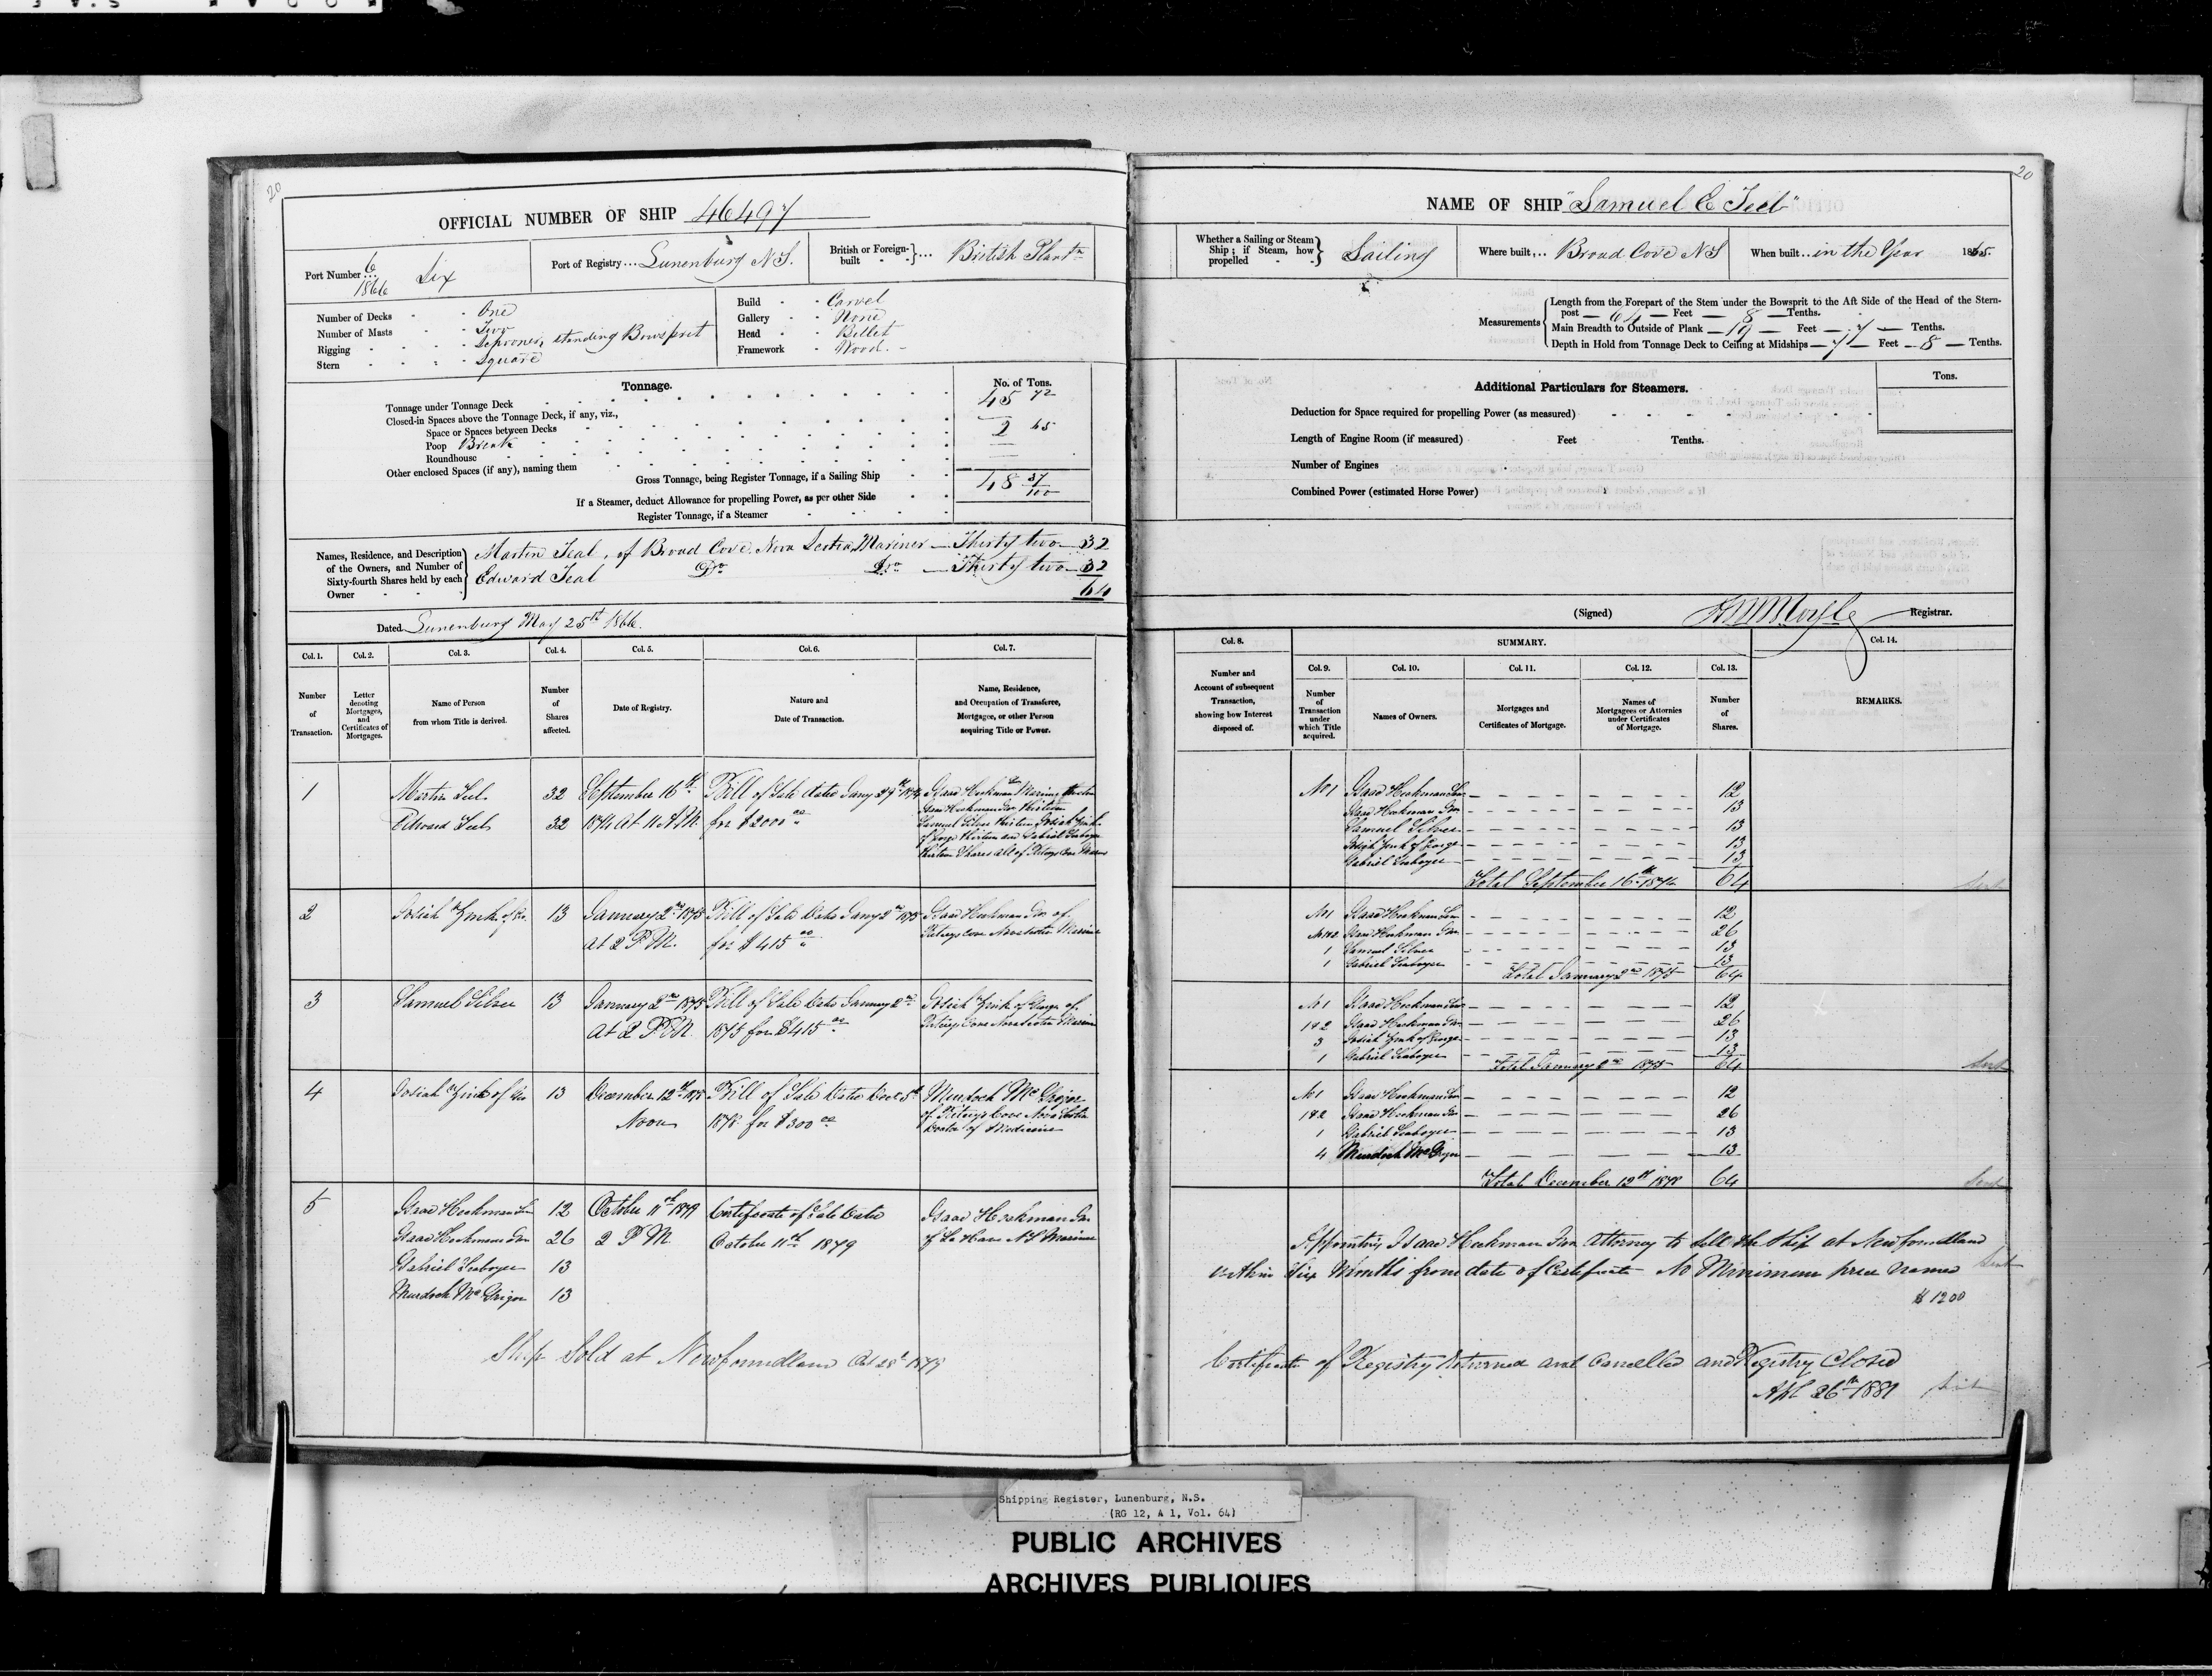 20
OFFICIAL NUMBER OF SHIP 46497
Port Number 6/1866 Six
Port of Registry... Lunenburg N.S.
British or Foreign-built ... British Plantn
Number of Decks - - One
Number of Masts - - Two
Rigging - - Schooner, standing Bowsprit
Stern - - Square
Build - - Carvel
Gallery - - None
Head - - Billet
Framework - Wood
Tonnage.
No. of Tons.
Tonnage under Tonnage Deck 45 72
Closed-in Spaces above the Tonnage Deck, if any, viz.,
Space or Spaces between Decks
Poop Break 2 65
Roundhouse
Other enclosed Spaces (if any), naming them
Gross Tonnage, being Register Tonnage, if a Sailing Ship 48 37/100
If a Steamer, deduct Allowance for propelling Power, as per other Side
Register Tonnage, if a Steamer
Names, Residence, and Description of the Owners, and Number of Sixty-fourth Shares held by each Owner
Martin Teal, of Broad Cove, Nova Scotia, Mariner — Thirty two — 32
Edward Teal Do Do — Thirty two — 32
64
Dated Lunenburg May 25th 1866.
Col. 1. Col. 2. Col. 3. Col. 4. Col. 5. Col. 6. Col. 7.
Number of Transaction.
Letter denoting Mortgages, and Certificates of Mortgages.
Name of Person from whom Title is derived.
Number of Shares affected.
Date of Registry.
Nature and Date of Transaction.
Name, Residence, and Occupation of Transferee, Mortgagee, or other Person acquiring Title or Power.
1 Martin Teel 32 September 16th Bill of Sale dated Jany 29th 1874 Isaac Heckman Senr Mariner twelve
Edward Teel 32 1874 at 11 A.M. for $2000 00 Isaac Heckman Jnr thirteen
Samuel Silver thirteen Josiah Zink
of George thirteen and Gabriel Seaboyer
thirteen Shares all of Ritceys Cove Mariners
2 Josiah Zink of Geo. 13 January 2nd 1875 Bill of Sale Dated Jany 2nd 1875 Isaac Heckman Jnr of
at 2 P.M. for $415 00 Ritceys Cove Nova Scotia Mariner
3 Samuel Silver 13 January 2nd 1875 Bill of Sale Dated January 2nd Josiah Zink of George of
at 2 P.M. 1875 for $415 00 Ritceys Cove Nova Scotia Mariner
4 Josiah Zink of Geo 13 December 12th 1878 Bill of Sale Dated Decr 5th Murdoch McGrigor
Noon 1878 for $300 00 of Ritceys Cove Nova Scotia
Doctor of Medicine
5 Isaac Heckman Sen 12 October 11th 1879 Certificate of Sale Dated Isaac Heckman Jnr
Isaac Heckman Jnr 26 2 P.M. October 11th 1879 of La Have N S Mariner
Gabriel Seaboyer 13
Murdoch McGrigor 13
Ship Sold at Newfoundland Oct 28th 1879
20
NAME OF SHIP "Samuel E Teel"
Whether a Sailing or Steam Ship; if Steam, how propelled Sailing
Where built... Broad Cove N S
When built... in the Year 1865.
Measurements
Length from the Forepart of the Stem under the Bowsprit to the Aft Side of the Head of the Stern-
post — 64 — Feet — 8 — Tenths.
Main Breadth to Outside of Plank — 19 — Feet — 7 — Tenths.
Depth in Hold from Tonnage Deck to Ceiling at Midships — 7 — Feet — 8 — Tenths.
Additional Particulars for Steamers.
Tons.
Deduction for Space required for propelling Power (as measured)
Length of Engine Room (if measured) Feet Tenths.
Number of Engines
Combined Power (estimated Horse Power)
(Signed) Registrar.
Col. 8. SUMMARY. Col. 14.
Col. 9. Col. 10. Col. 11. Col. 12. Col. 13.
Number and Account of subsequent Transaction, showing how Interest disposed of.
Number of Transaction under which Title acquired.
Names of Owners.
Mortgages and Certificates of Mortgage.
Names of Mortgagees or Attornies under Certificates of Mortgage.
Number of Shares.
REMARKS.
No 1 Isaac Heckman Sen 12
Isaac Heckman Jnr 13
Samuel Silver 13
Josiah Zink of George 13
Gabriel Seaboyer 13
Total September 16th 1874 64
No 1 Isaac Heckman Sen 12
No 1&2 Isaac Heckman Jnr 26
1 Samuel Silver 13
1 Gabriel Seaboyer 13
Total January 2nd 1875 64
No 1 Isaac Heckman Sen 12
1&2 Isaac Heckman Jnr 26
3 Josiah Zink of George 13
1 Gabriel Seaboyer 13
Total January 2nd 1875 64
No 1 Isaac Heckman Sen 12
1&2 Isaac Heckman Jnr 26
1 Gabriel Seaboyer 13
4 Murdoch McGrigor 13
Total December 12th 1878 64
Appointing Isaac Heckman Jnr Attorney to Sell the Ship at Newfoundland
within Six Months from date of Certificate No Minimum price named
$1200
Certificate of Registry Returned and Cancelled and Registry Closed
Apl 26th 1881
Shipping Register, Lunenburg, N.S.
(RG 12, A 1, Vol. 64)
PUBLIC ARCHIVES
ARCHIVES PUBLIQUES